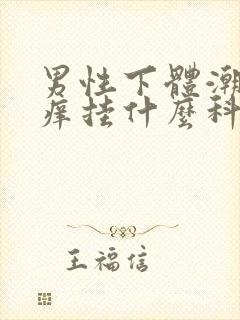 男性下體潮
痒挂什麼科
王福信